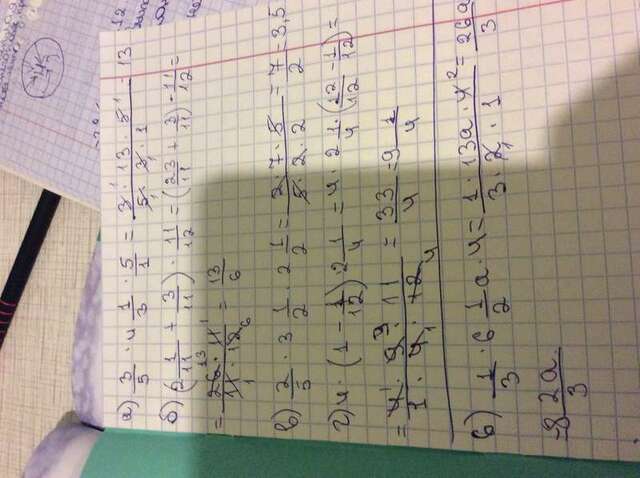 а) 3/5 · 4 1/3 · 5/1 = 3 · 13 · 5 / 5 · 3 · 1 = 13
б) (2 1/11 + 3/11) · 11/12 = (23/11 + 3/11) · 11/12 =
= 26 · 11 / 11 · 12 = 13/6
в) 2/5 · 3 1/2 · 2 1/2 = 2 · 7 · 5 / 5 · 2 · 2 = 7/2 = 3,5
г) 4 · (1 - 1/12) · 2 1/4 = 4 · 2 1/4 · (12/12 - 1/12) =
= 4 · 9 · 11 / 1 · 4 · 12 = 33/4 = 9 1/4
б) 1/3 · 6 1/2 a · 4 = 1 · 13a · 4 / 3 · 2 · 1 = 26a/3
= 8 2a/3